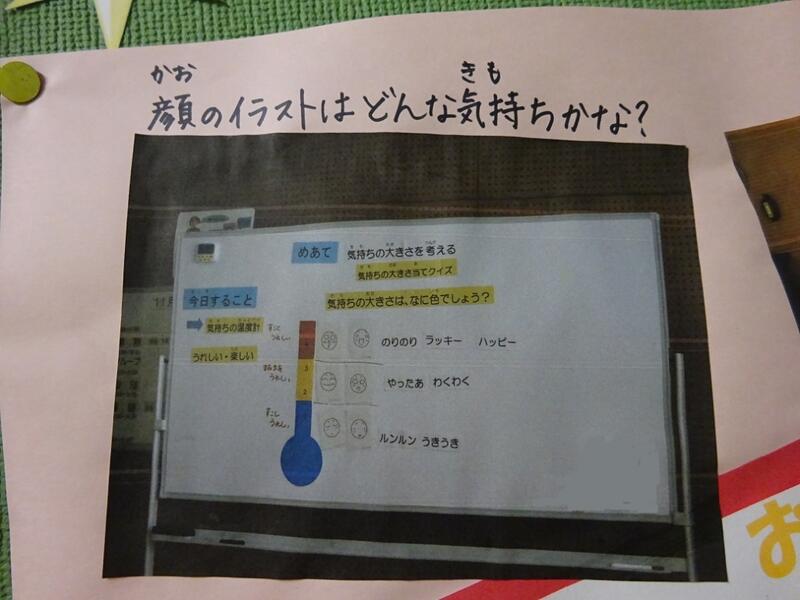 かお きも
顔のイラストはどんな気持ちかな?
めあて 気持ちの大きさを考える
気持ちの大きさ当てクイズ
今日すること 気持ちの大きさは、なに色でしょう?
気持ちの温度計
うれしい・楽しい
すごく
うれしい
のりのり ラッキー ハッピー
3
うれしい
2
やったあ わくわく
すこし
うれしい
ルンルン うきうき
お